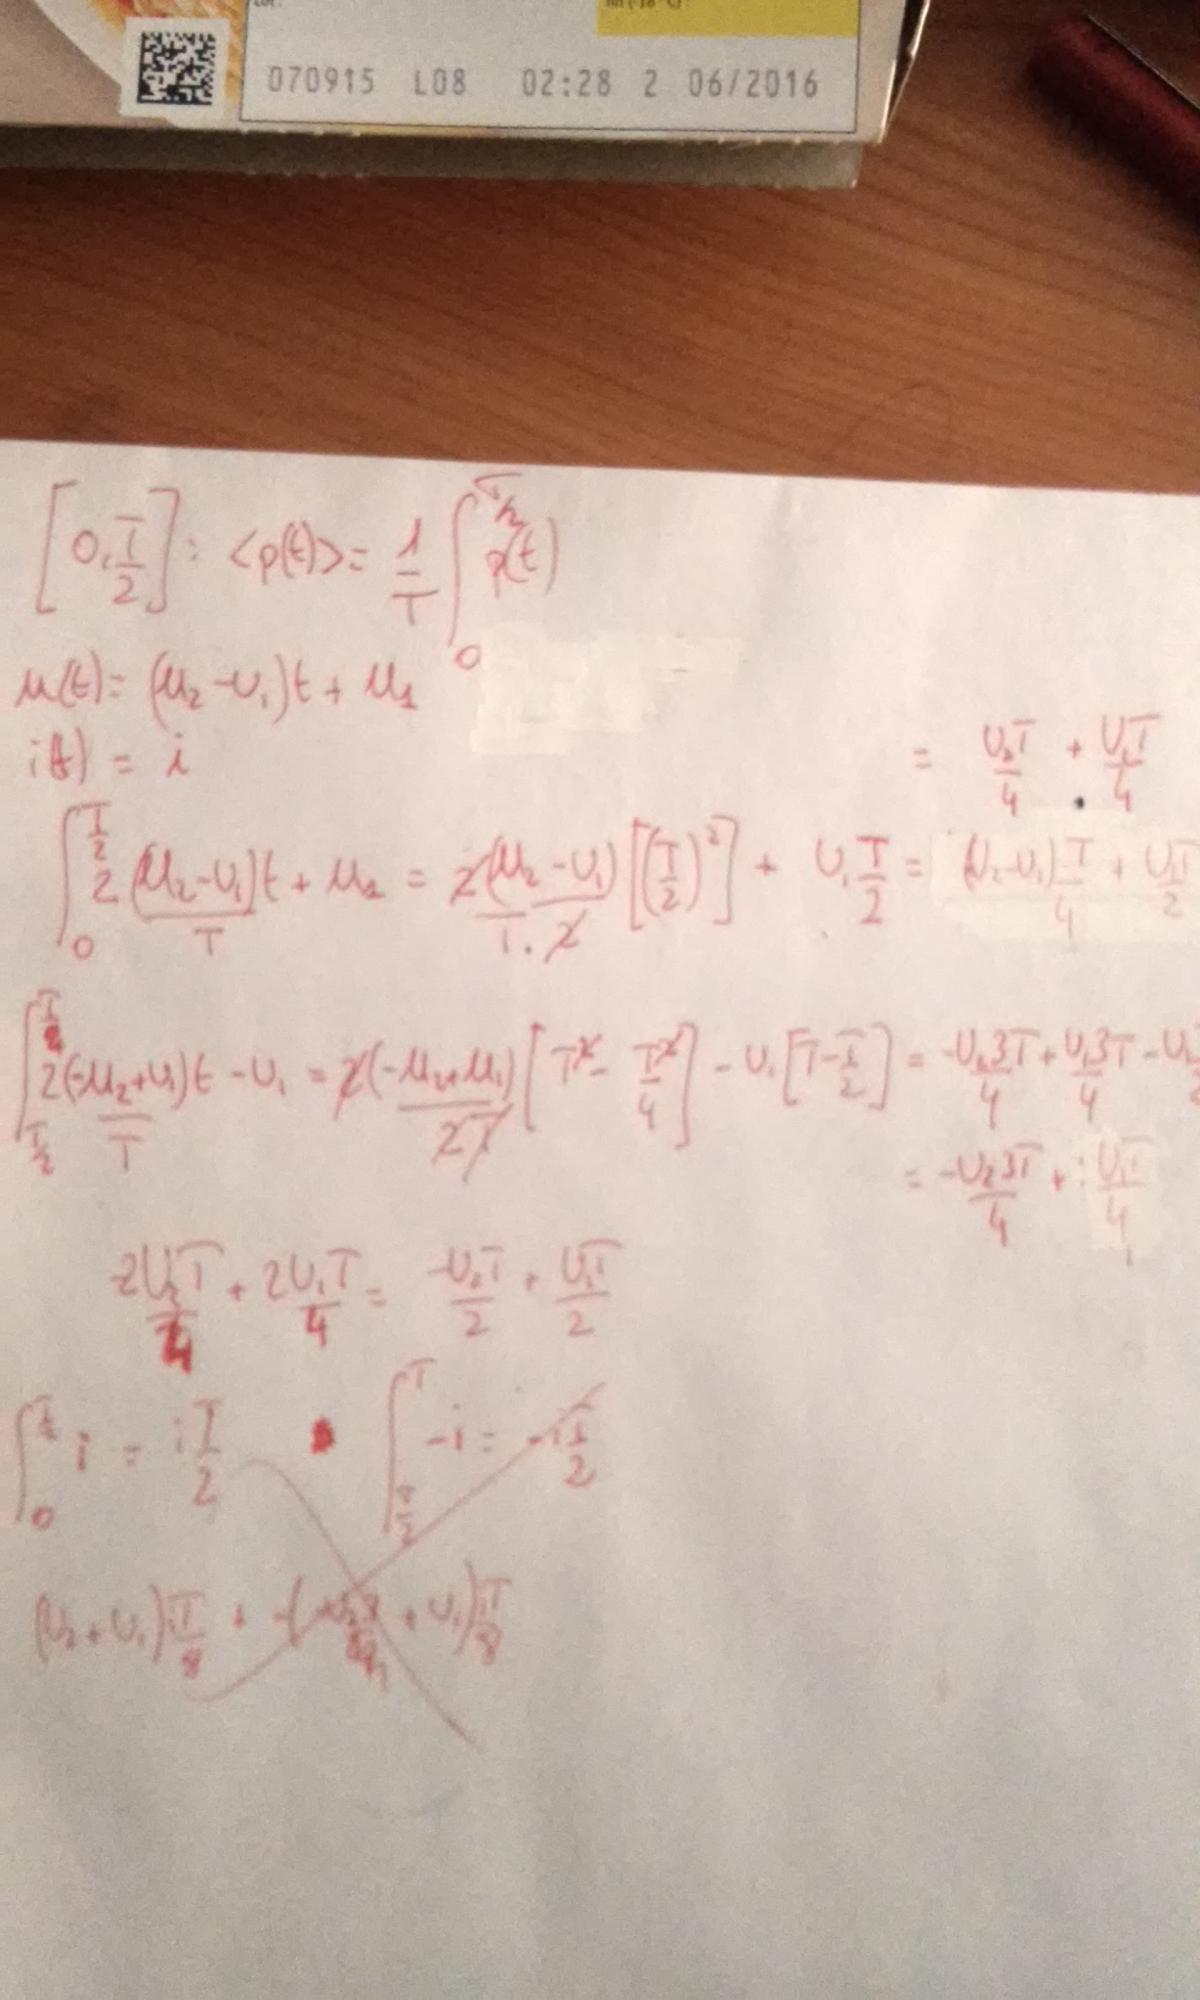 070915 L08 02:28 2 06/2016
[0, T/2] : <p(t)> = 1/T ∫_0^{T/2} p(t)
u(t) = (u₂ - u₁)t + u₁
i(t) = i
= U₂T/4 + U₁T/4
∫_0^{T/2} 2(u₂-u₁)t/T + u₁ = 2(u₂-u₁)/(T·2) [(T/2)²] + U₁ T/2 = (U₂-U₁)T/4 + U₁T/2
2(-u₂+u₁)t/T - U₁ = 2(-u₂+u₁)/(2T) [T² - T²/4] - U₁[T - T/2] = -U₂3T/4 + U₁3T/4 - U₁
= -U₂3T/4 + U₁T/4
-2U₂T/4 + 2U₁T/4 = -U₂T/2 + U₁T/2
∫_0^{T/2} i = i T/2 ∫_{T/2}^T -i = -i T/2
(U₂+U₁) iT/8 + -( + U₁) iT/8